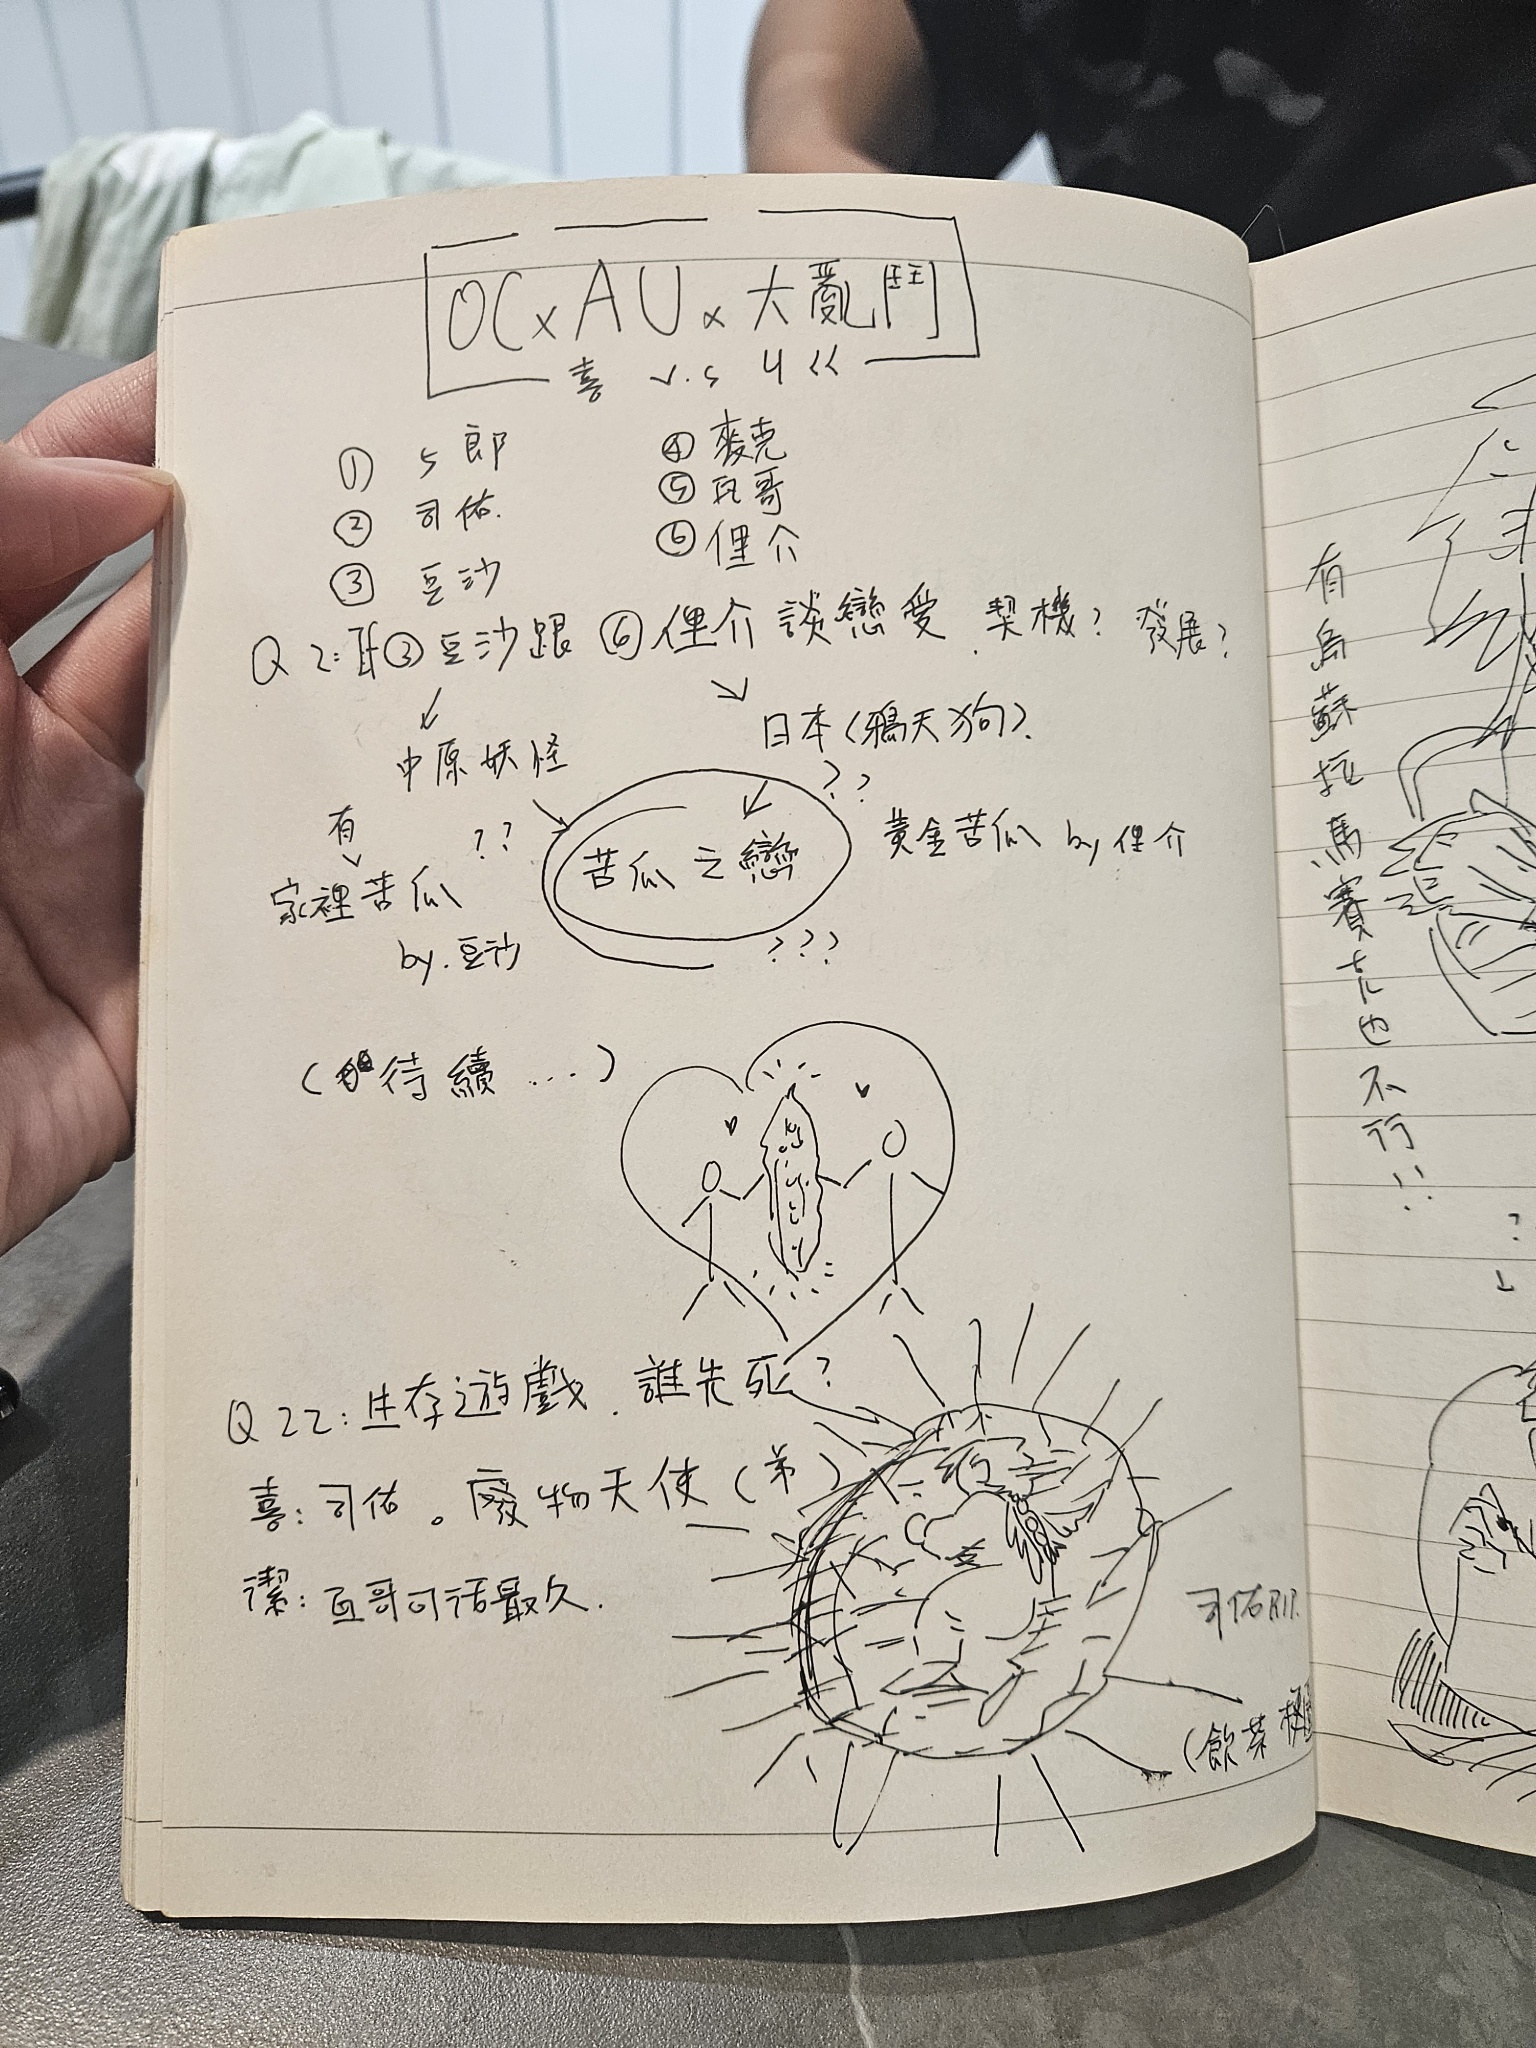 OC x AU x 大亂鬥
喜 v.s ㄐㄍ
① ㄣ郎
② 司佑.
③ 豆沙
④ 麥克
⑤ 瓦哥
⑥ 俚介
Q2: ③豆沙跟 ⑥俚介談戀愛. 契機? 發展?
中原妖怪
日本(鴉天狗).
有
家裡苦瓜
by.豆沙
??
苦瓜之戀
??
???
黃金苦瓜 by 俚介
(待續 ...)
Q22: 生存遊戲. 誰先死?
喜: 司佑。廢物天使(弟)
潔: 瓦哥可活最久.
司佑
(飲茶
有烏蘇拉馬賽克也不行!!
?